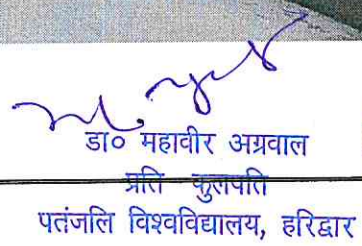 डा० महावीर अग्रवाल
प्रति कुलपति
पतंजलि विश्वविद्यालय, हरिद्वार